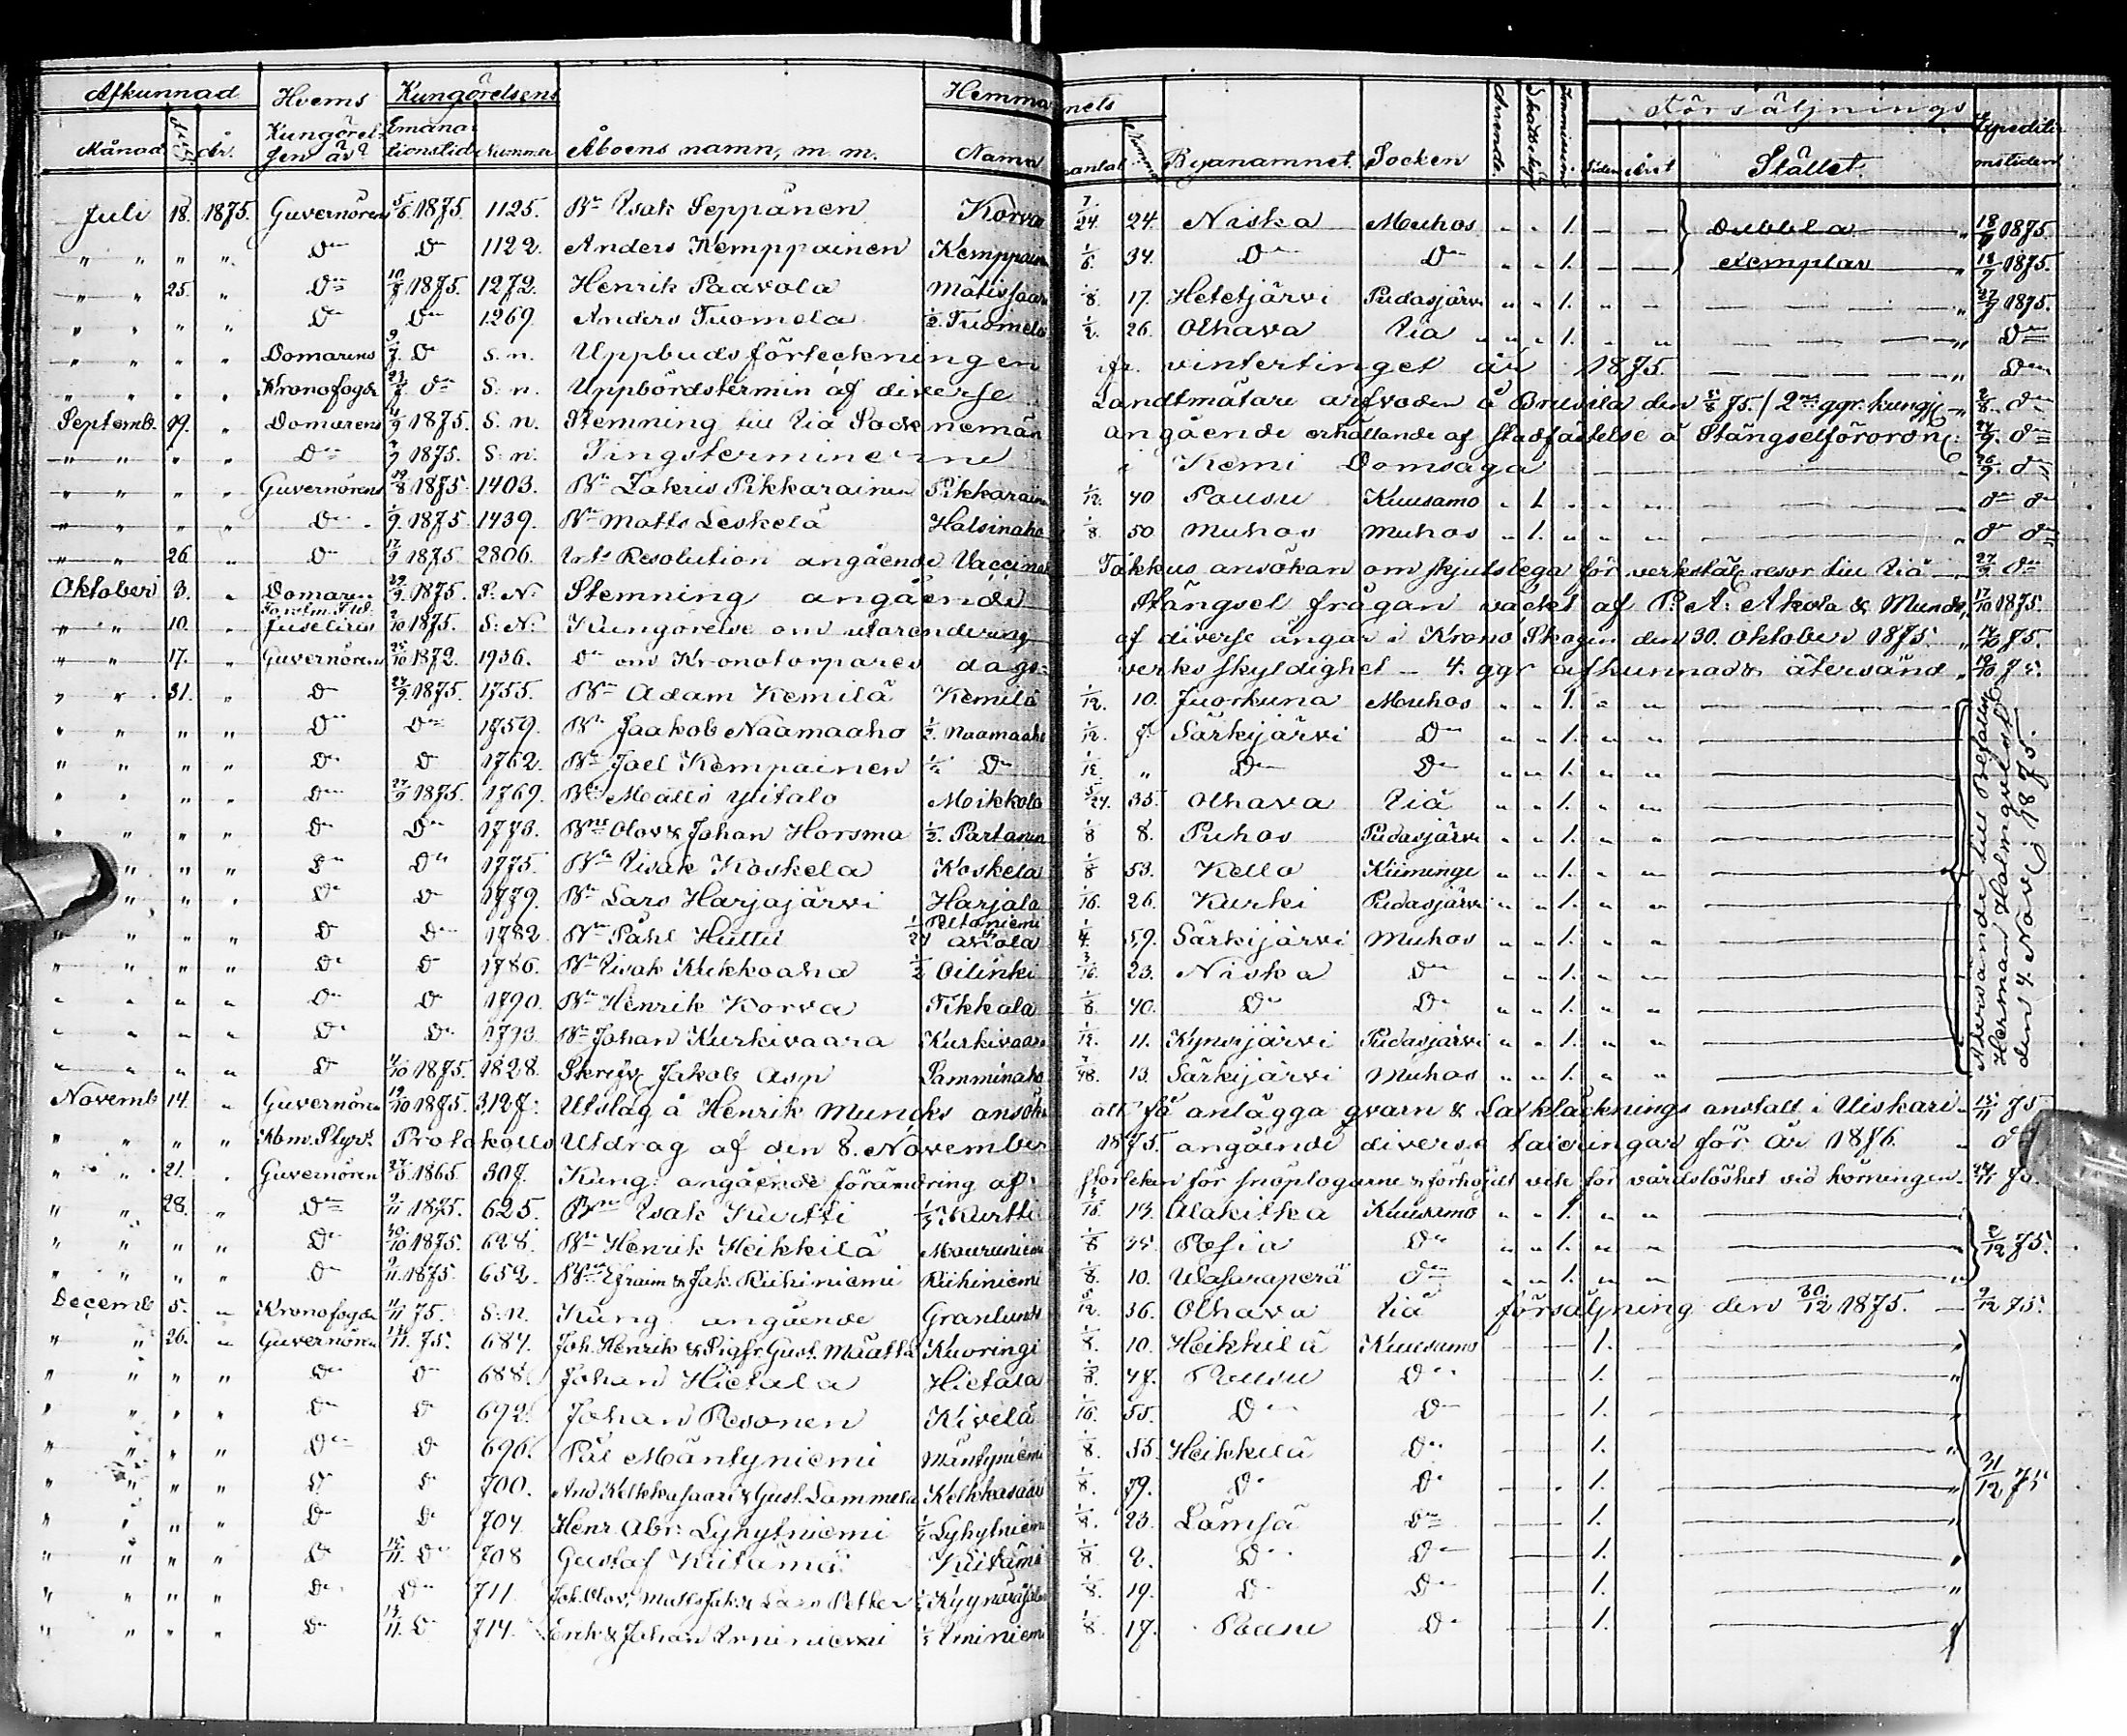 Afkunnad Hvems Kungörelsens Hemma nets Försäljnings
Månad År. Kungörelsen är? Emanationstid Nummer Åboens namn, m. m. Namn antal Nummer Byanamnet. Socken Arrende. Immission Tiden Året Stället. Expeditionstiden
Juli 18. 1875. Guvernören 5/6 1875. 1125. Bn Isak Seppänen Korva 7/24 24. Niska Muhos " " 1. — — dubbla 18/7 1875.
" " " " Do Do 1122. Anders Kemppainen Kemppain 1/6. 34. Do Do " " 1. — — exemplar " 18/7 1875.
" " 25. " Do 10/7 1875. 1272. Henrik Paavola Mätisfaar 1/8. 17. Hetetjärvi Pudasjärvi " " 1. " — " 27/7 1875.
" " " " Do Do 1269. Anders Tuomela 1/2. Tuomela 1/2. 26. Olhava Iiå " " 1. " " — " Do
" " " " Domarens 9/7. Do S. n. Uppbudsförteckningen fr. vintertinget år 1875. — " Do
" " " " Kronofogde 23/7 Do S. n. Uppbördstermin af diverse Landtmätare arfvoden å Brusila den 5/8 75. / 2ne ggr. kungj. 2/8. Do
Septemb. 19. " Domarens 4/9 1875. S. n. Stemning till Iiå Sockenemän angående erhållande af stadfästelse å Stängselförordn. 24/9. Do
" " " " Do 7/9 1875. S. n. Tingsterminerne i Kemi Domsaga — 26/9. Do
" " " " Guvernörens 19/8 1875. 1403. Bn Zakris Pikkarainen Pikkarain 1/12. 40 Pousu Kuusamo " 1. " " " — Do Do
" " " " Do 1/9. 1875. 1439. Bn Matts Leskelä Halsinaho 1/8. 50 Muhos Muhos " 1. " " " — Do Do
" " 26. " Do 17/9 1875. 2806. Resolution angående Vaccinat Takkus ansökan om skjutslega för verkstäl. resor till Iiå 27/9. Do
Oktober 3. " Domaren 29/9. 1875. S. N. Stemning angående Stängsel frågan väckt af P. A. Akola & Munds, 17/10 1875.
" " 10. " Juselius 2/10 1875. S. N. Kungörelse om utarendering af diverse ängar i Krono Skogen den 30. Oktober 1875. 14/10 75.
" " 17. " Guvernörens 25/10 1872. 1936. Do om Kronotorpares dags verks skyldighet — 4. ggr afkunnad & återsänd 19/10 75.
" " 31. " Do 27/9. 1875. 1755. Bn Adam Kemilä Kemilä 1/12. 10. Juorkuna Muhos " " 1. " " —
" " " " Do Do 1759. Bn Jaakob Naamaaho 1/2. Naamaaho 1/12. 7. Särkijärvi Do " " 1. " " —
" " " " Do Do 1762. Bn Joel Kempainen 1/2 Do 1/12. " Do Do " " 1. " " —
" " " " Do 27/9 1875. 1769. Bn Matts Ylitalo Meikkola 5/24. 35. Olhava Iiå " " 1. " " —
" " " " Do Do 1773. Bne Olov & Johan Horsma 1/2. Partanen 1/8 8. Puhos Pudasjärvi " " 1. " " —
" " " Do Do 1775. Bn Isak Koskela Koskela 1/8 53. Kello Kiiminge " " 1. " " —
" " " Do Do 1779. Bn Lars Harjajärvi Harjala 1/16. 26. Kurki Pudasjärvi " " 1. " " —
" " " " Do Do 1782 Bn Påhl Huttu 1/24 Peltoniemi arkola 1/4. 59. Särkijärvi Muhos " " 1. " " —
" " " " Do Do 1786. Bn Isak Kukkoaha 1/2 Oilinki 3/16. 23. Niska Do " " 1. " " —
" " " " Do Do 1790. Bn Henrik Korva Tikkala 1/8. 40. Do Do " " 1. " " —
" " " " Do Do 1793. Bn Johan Kurkivaara Kurkivaara 1/12. 11. Kynsijärvi Pudasjärvi " " 1. " " —
" " " " Do 4/10 1875. 1828. Jakob Asp Lamminaho 7/48. 13. Särkijärvi Muhos " " 1. " " —
Återsände till Befalln. Herman Holmqvist den 4. Nov. 1875.
Novemb. 14. " Guvernören 19/10 1875. 3127. Utslag å Henrik Muncks ansök. att få anlägga qvarn & Laxkläcknings anstalt i Uiskari. 15/11 75
" " " " Kbm. Styr. Protokolls Utdrag af den 8. November 1875. angående diverse taxeringar för år 1876. " Do
" " 21. " Guvernören 27/3 1865. 307. Kung. angående förändring af storleken för snöplogarne & förhöjdt vite för vårdslöshet vid körningen.
" " 28. " Do 2/11 1875. 625. Bne Isak Kurtti Kurtti 3/16. 13. Alakitka Kuusamo " " 1. " " —
" " " " Do 30/10 1875. 628. Bn Henrik Heikkilä Mourunien 1/8 35. Posio Do " " 1. " " — 2/12 75.
" " " " Do 9/11. 1875. 652. Bne Efraim & Jak. Riihiniemi Riihiniemi 1/8. 10. Vasaraperä Do " " 1. " " —
Decemb. 5. " Kronofogden 11/11 75. S. n. Kung. angående Granlunds 5/12. 36. Olhava Iiå försäljning den 30/12 1875. — 9/12 75.
" " 26. " Guvernören 14/11. 75. 684. Joh. Henrik & Sigfr. Gust. Määttä Kuoringi 1/8. 10. Heikkilä Kuusamo — 1. —
" " " " Do Do 688. Johan Hietala Hietala 1/8. 47. Pousu Do — 1. —
" " " " Do Do 692. Johan Pesonen Kivelä 1/16. 55. Do Do — 1. —
" " " " Do Do 696. Pål Mäntyniemi Mäntyniemi 1/8. 35. Heikkilä Do — 1. —
" " " " Do Do 700. And Kelkkasaari & Gust. Lammela Kelkkasaari 1/8. 79. Do Do — 1. — 31/12 75
" " " " Do Do 704 Henr. Abr. Lyhytniemi Lyhytniem 1/8. 23. Lämsä Do — 1. —
" " " " Do 15/11. Do 708 Gustaf Kiitämä Kiitämä 1/8 2. Do Do — 1. —
" " " " Do Do 711 1/8. 19. Do Do — 1. —
" " " " Do 13/11. Do 714. Erik & Johan Irniniemi Irniniemi 1/8. 17. Pousu Do — 1. —